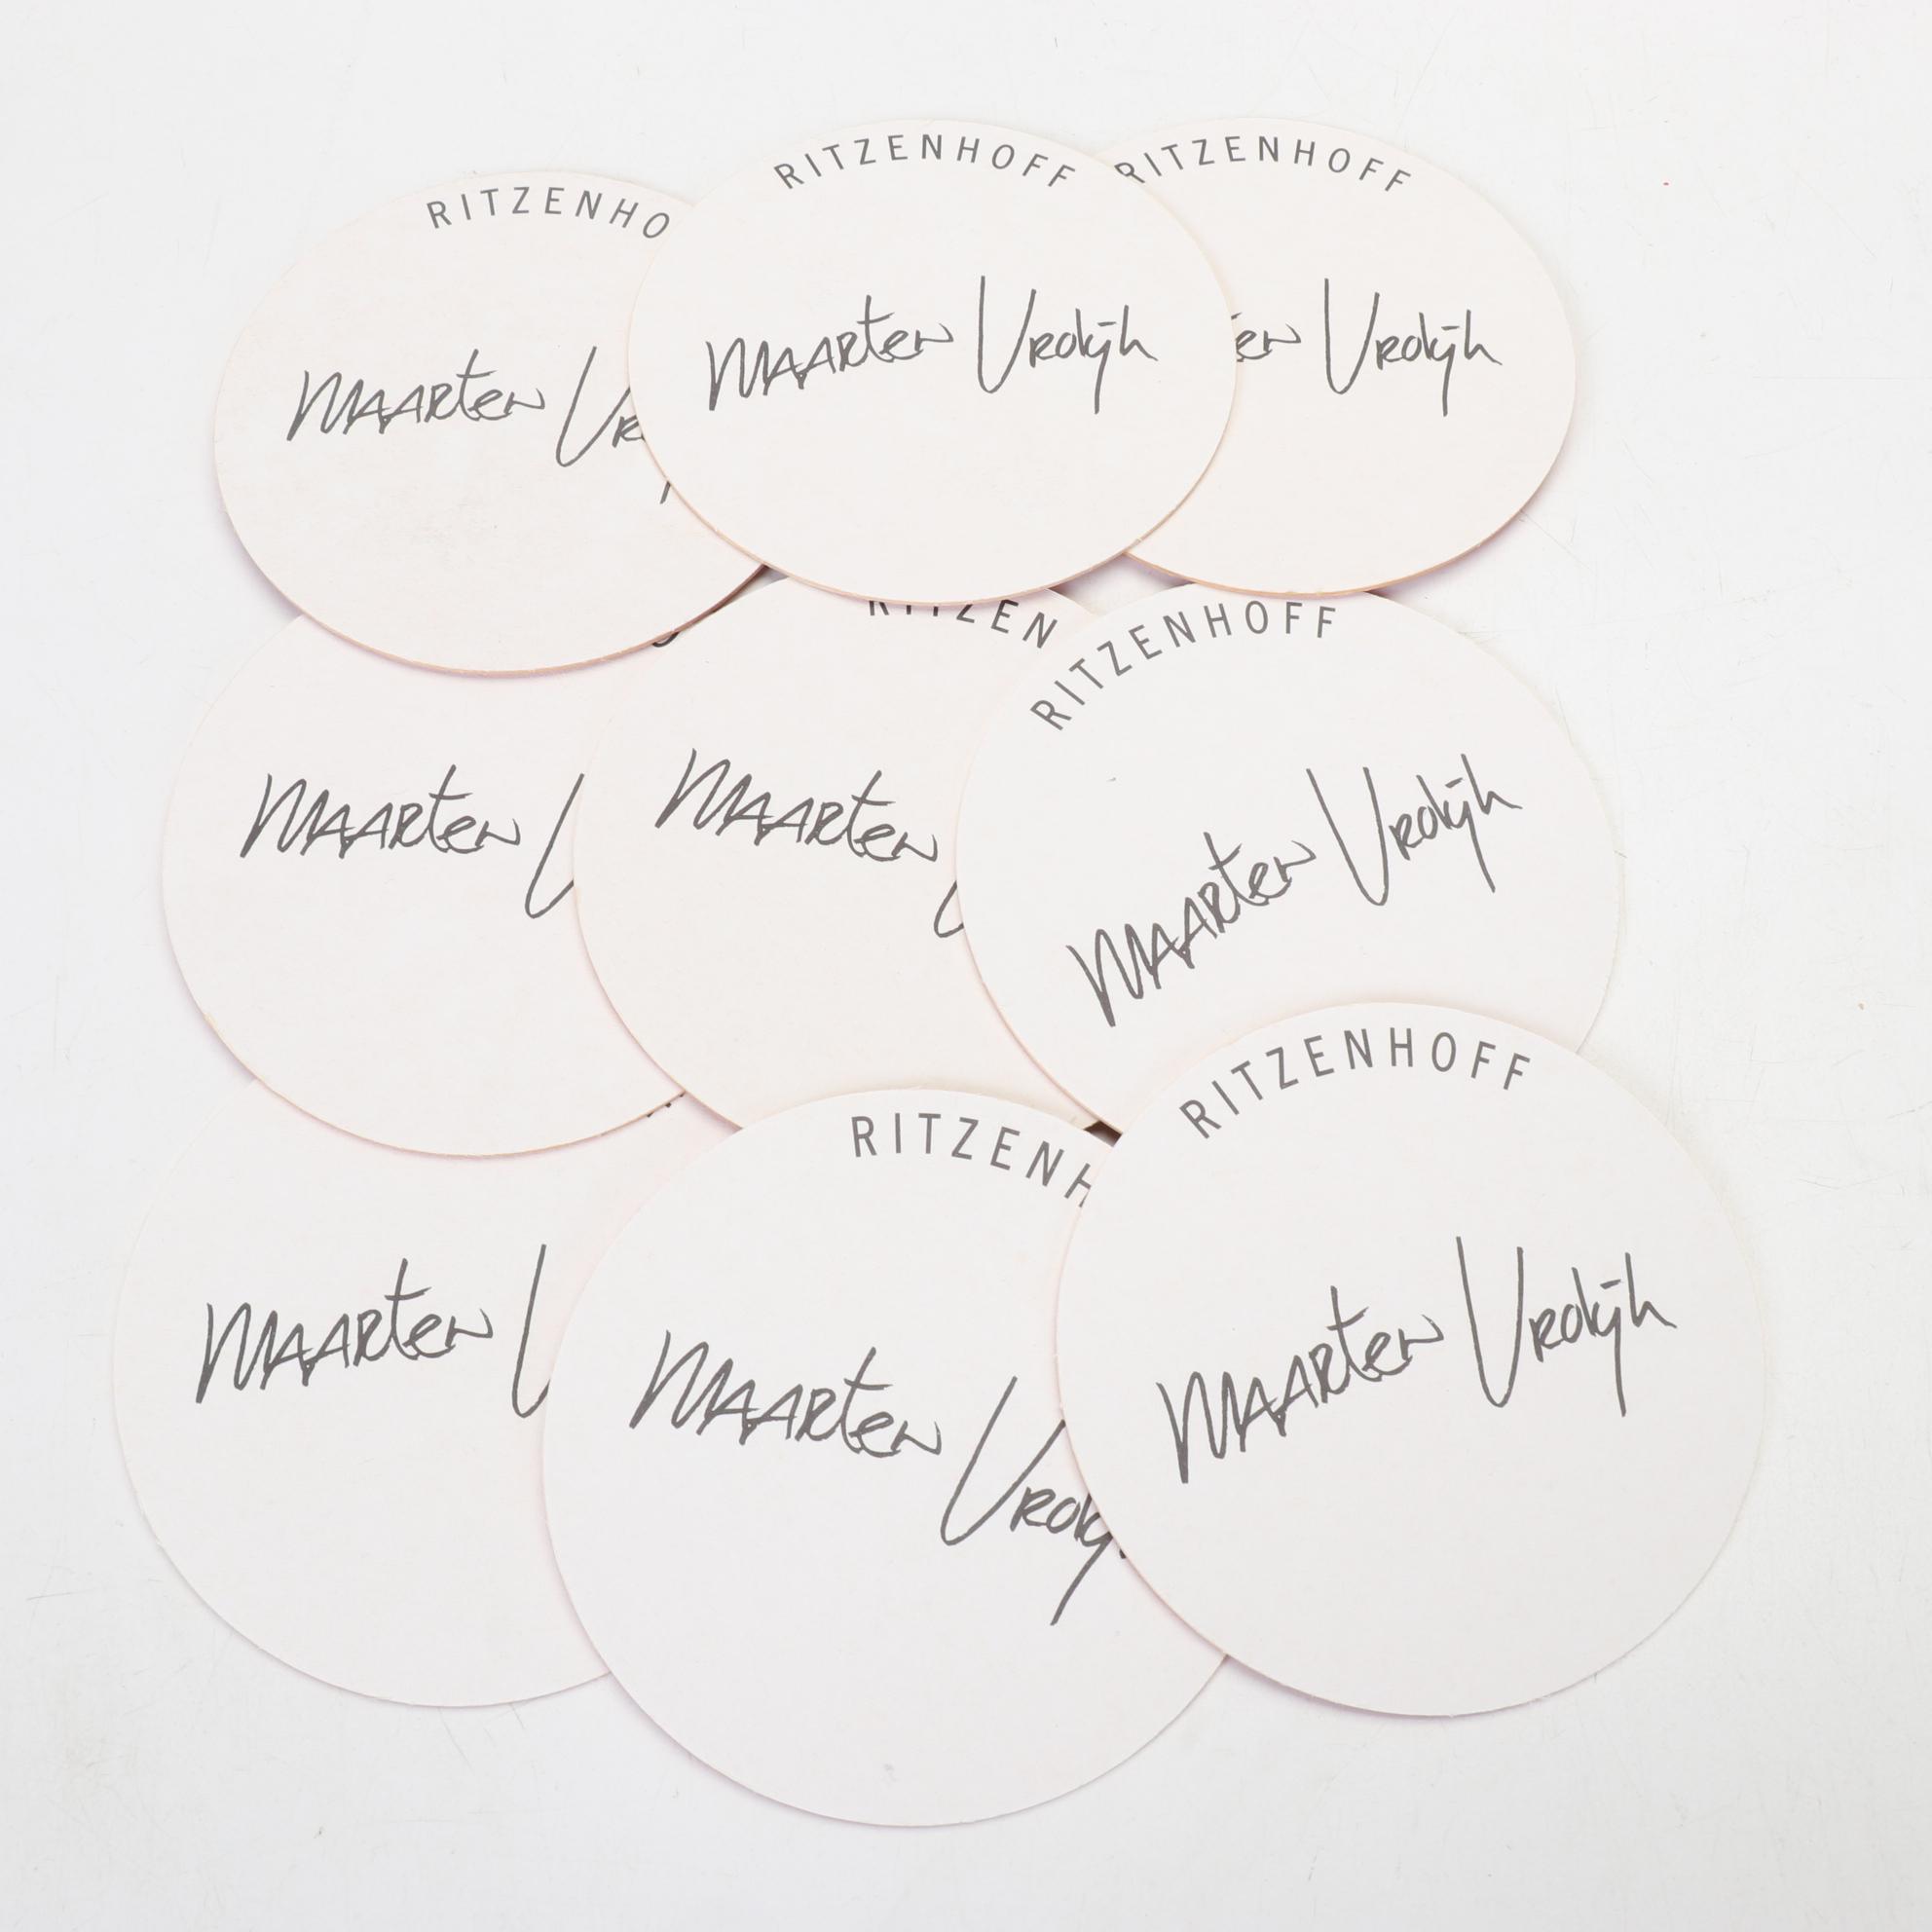 RITZENHO
MAARten Vr
RITZENHOFF
MAARten Vrolijk
RITZENHOFF
en Vrolijk
MAARten V
RITZEN
MAARten
RITZENHOFF
MAARten Vrolijk
MAARten V
RITZENH
MAARten Vrolij
RITZENHOFF
MAARten Vrolijk